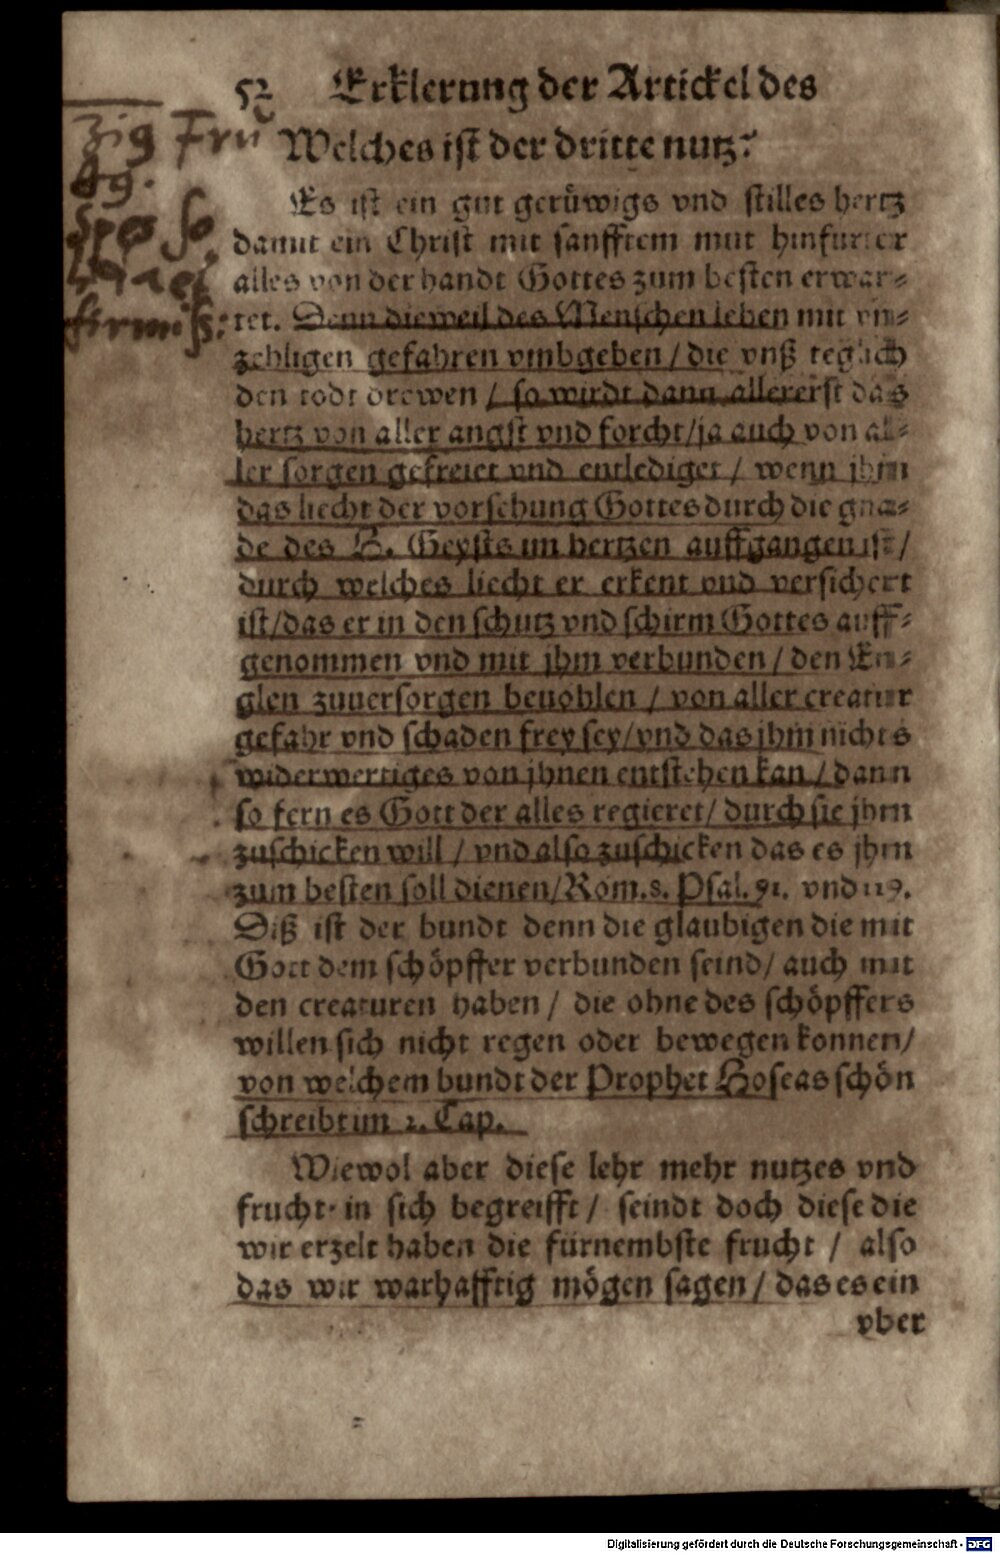 52 Erklerung der Artickel des
Welches ist der dritte nutz?
Es ist ein gut gerüwigs vnd stilles hertz
damit ein Christ mit sanfftem mut hinfurter
alles von der handt Gottes zum besten erwar-
tet. Denn dieweil des Menschen leben mit vn-
zehligen gefahren vmbgeben / die vnß teglich
den todt drowen / so wirdt dann allererst das
hertz von aller angst vnd forcht / ja auch von al-
ler sorgen gefreiet vnd entlediget / wenn jhm
das liecht der vorsehung Gottes durch die gna-
de des H. Geysts im hertzen auffgangen ist /
durch welches liecht er erkent vnd versichert
ist / das er in den schutz vnd schirm Gottes auff-
genommen vnd mit jhm verbunden / den En-
glen zuuersorgen beuohlen / von aller creatur
gefahr vnd schaden frey sey / vnd das jhm nichts
widerwertiges von jhnen entstehen kan / dann
so fern es Gott der alles regieret / durch sie jhm
zuschicken will / vnd also zuschicken das es jhm
zum besten soll dienen / Rom. 8. Psal. 91. vnd 119.
Diß ist der bundt denn die glaubigen die mit
Gott dem schöpffer verbunden seind / auch mit
den creaturen haben / die ohne des schöpffers
willen sich nicht regen oder bewegen konnen /
von welchem bundt der Prophet Hoseas schön
schreibt im 2. Cap.
Wiewol aber diese lehr mehr nutzes vnd
frucht in sich begreifft / seindt doch diese die
wir erzelt haben die fürnembste frucht / also
das wir warhafftig mögen sagen / das es ein
vber
Digitalisierung gefördert durch die Deutsche Forschungsgemeinschaft - DFG